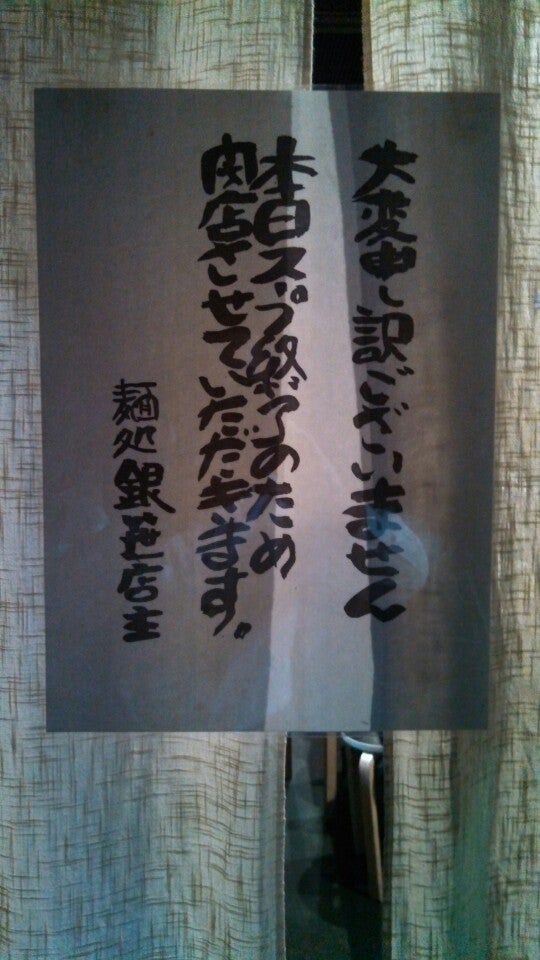 大変申し訳ございません
本日スープ終了のため
閉店させていただきます。
麺処銀笹店主